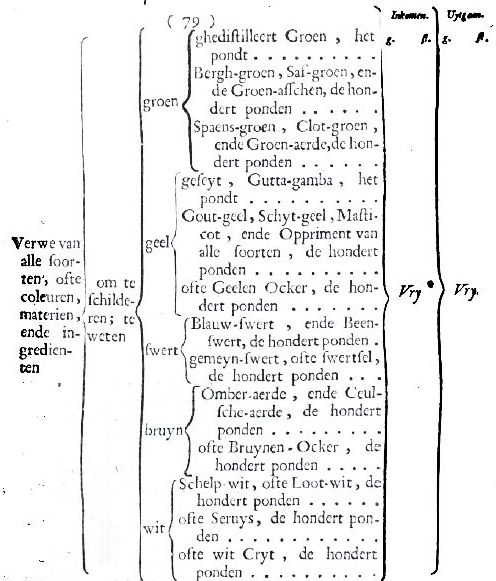 ( 79 )
Inkomen. Uytgaen.
g. ſt. g. ſt.
ghediſtilleert Groen , het
pondt . . . . . . . . . .
Bergh-groen, Saſ-groen, en-
de Groen-aſſchen, de hon-
dert ponden . . . . . .
groen
Spaens-groen , Clot-groen ,
ende Groen-aerde, de hon-
dert ponden . . . . . .
geſeyt , Gutta-gamba , het
pondt . . . . . . . . .
Gout-geel, Schyt-geel, Maſti-
cot , ende Oppriment van
geel
alle ſoorten , de hondert
ponden . . . . . . . . .
ofte Geelen Ocker, de hon-
dert ponden . . . . . .
Verwe van
alle ſoor-
ten, ofte
coleuren,
materien,
ende in-
gredien-
ten
om te
ſchilde-
ren; te
weten
Vry * Vry.
Blauw-ſwert , ende Been-
ſwert, de hondert ponden .
ſwert
gemeyn-ſwert, ofte ſwertſel,
de hondert ponden . . .
Omber-aerde, ende Ceul-
ſche-aerde, de hondert
ponden . . . . . . . .
bruyn
ofte Bruynen-Ocker , de
hondert ponden . . . . .
Schelp-wit, ofte Loot-wit, de
hondert ponden . . . . . .
ofte Seruys, de hondert pon-
den . . . . . . . . . .
wit
ofte wit Cryt , de hondert
ponden . . . . . . . . .